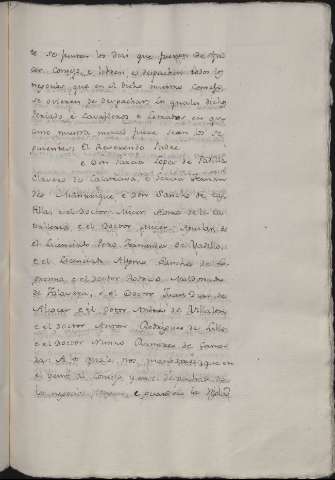 se junten los dias que fueren de facer Consejo, e libren e despachen todos los
negocios que en el dicho nuestro Consejo
se ovieren de despachar. Los quales dichos
Perlado e Cavalleros e Letrados es que
como nuestra merced fuere sean los se
guientes: El Reverendo Padre
e Don Garcia Lopez de Padilla
Clavero de Calatrava, e Garcia Fernan
des Manrrique e Don Sancho de Cas
tilla e el Doctor Micer Alonso de la Ca
valleria, e el Doctor Micer Aguilar, e
el Licenciado Pero Fernandez de Vadillo,
e el Licenciado Alfonso Sanchez de Lo
groño e el doctor Rodrigo Maldonado
de Talavera, e el Doctor Juan Diaz de
Alcocer e el Doctor Andres de Villalon,
e el doctor Anton Rodriguez de Lillo
e el doctor Nunno Ramirez de Zamo
ra: A lo quales nos mandamos que en
el dicho Consejo y en el despachar de
los negocios tengan, e guarden la Orden